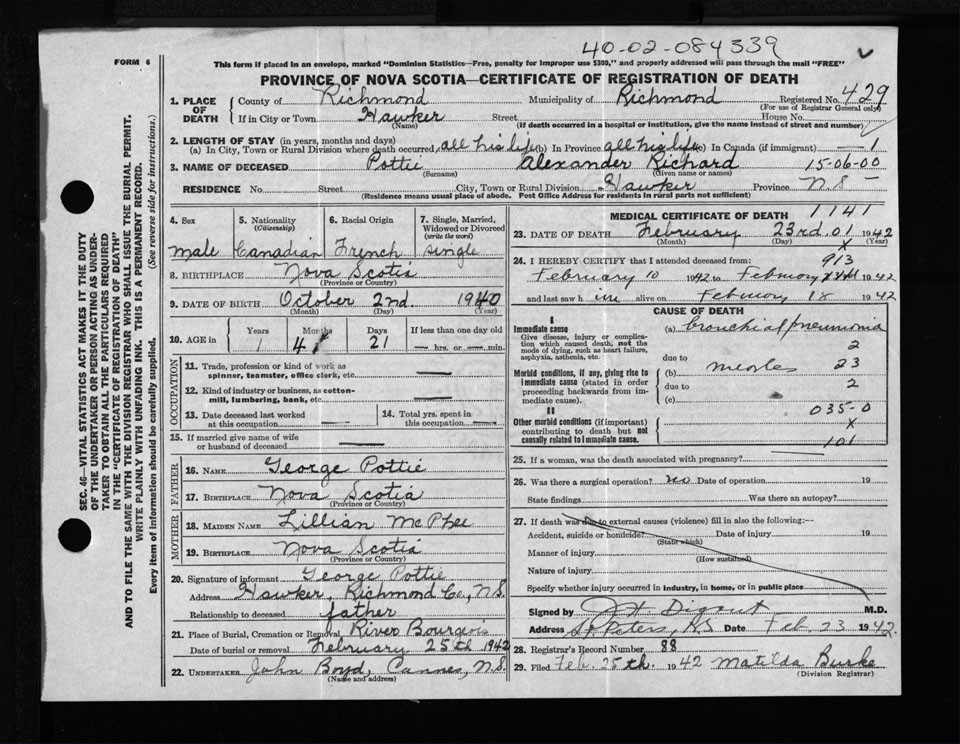 40-02-084339
FORM 6
This form if placed in an envelope, marked "Dominion Statistics—Free, penalty for improper use $300," and properly addressed will pass through the mail "FREE"
PROVINCE OF NOVA SCOTIA—CERTIFICATE OF REGISTRATION OF DEATH
SEC. 46—VITAL STATISTICS ACT MAKES IT THE DUTY
OF THE UNDERTAKER OR PERSON ACTING AS UNDER-
TAKER TO OBTAIN ALL THE PARTICULARS REQUIRED
IN THE "CERTIFICATE OF REGISTRATION OF DEATH"
AND TO FILE THE SAME WITH THE DIVISION REGISTRAR WHO SHALL ISSUE THE BURIAL PERMIT.
WRITE PLAINLY WITH UNFADING INK. THIS IS A PERMANENT RECORD.
Every item of information should be carefully supplied. (See reverse side for instructions.)
1. PLACE OF DEATH County of Richmond Municipality of Richmond Registered No. 429
(For use of Registrar General only)
If in City or Town Hawker Street House No.
(Name) (If death occurred in a hospital or institution, give the name instead of street and number)
2. LENGTH OF STAY (in years, months and days)
(a) In City, Town or Rural Division where death occurred, all his life (b) In Province all his life (c) In Canada (if immigrant) — 1
3. NAME OF DECEASED Pottie Alexander Richard 15-06-00
(Surname) (Given name or names)
RESIDENCE No Street City, Town or Rural Division Hawker Province N S
(Residence means usual place of abode. Post Office Address for residents in rural parts not sufficient)
4. Sex 5. Nationality (Citizenship) 6. Racial Origin 7. Single, Married, Widowed or Divorced (Write the word)
male Canadian French single
8. BIRTHPLACE Nova Scotia
(Province or Country)
9. DATE OF BIRTH October 2nd. 1940
(Month) (Day) (Year)
10. AGE in Years Months Days If less than one day old
1 4 21 — hrs. or — min.
OCCUPATION
11. Trade, profession or kind of work as
spinner, teamster, office clerk, etc. —
12. Kind of industry or business, as cotton-
mill, lumbering, bank, etc. —
13. Date deceased last worked
at this occupation —
14. Total yrs. spent in
this occupation —
15. If married give name of wife
or husband of deceased —
FATHER
16. NAME George Pottie
17. BIRTHPLACE Nova Scotia
(Province or Country)
MOTHER
18. MAIDEN NAME Lillian McPhee
19. BIRTHPLACE Nova Scotia
(Province or Country)
20. Signature of informant George Pottie
Address Hawker, Richmond Co., N.S.
Relationship to deceased father
21. Place of Burial, Cremation or Removal River Bourgeois
Date of burial or removal February 25th 1942
22. UNDERTAKER John Boyd, Cannes, N.S.
(Name and address)
MEDICAL CERTIFICATE OF DEATH 1141
23. DATE OF DEATH February 23rd. 01 1942
(Month) (Day) x (Year)
24. I HEREBY CERTIFY that I attended deceased from 913
February 10 1942 to February 1942
and last saw him alive on February 18 1942
CAUSE OF DEATH
I
Immediate cause
Give disease, injury or complica-
tion which caused death, not the
mode of dying, such as heart failure,
asphyxia, asthenia, etc.
(a) bronchial pneumonia
2
due to
Morbid conditions, if any, giving rise to
immediate cause (stated in order
proceeding backwards from im-
mediate cause).
(b) measles 23
due to 2
(c)
II
035-0
Other morbid conditions (if important)
contributing to death but not
causally related to immediate cause.
x
101
25. If a woman, was the death associated with pregnancy?
26. Was there a surgical operation? no Date of operation 19
State findings Was there an autopsy?
27. If death was due to external causes (violence) fill in also the following:—
Accident, suicide or homicide? Date of injury 19
(State which)
Manner of injury
(How sustained)
Nature of injury
Specify whether injury occurred in industry, in home, or in public place
Signed by J H Digout M.D.
Address St. Peters, N.S Date Feb. 23 1942.
28. Registrar's Record Number 88
29. Filed Feb. 25th. 1942 Matilda Burke
(Division Registrar)